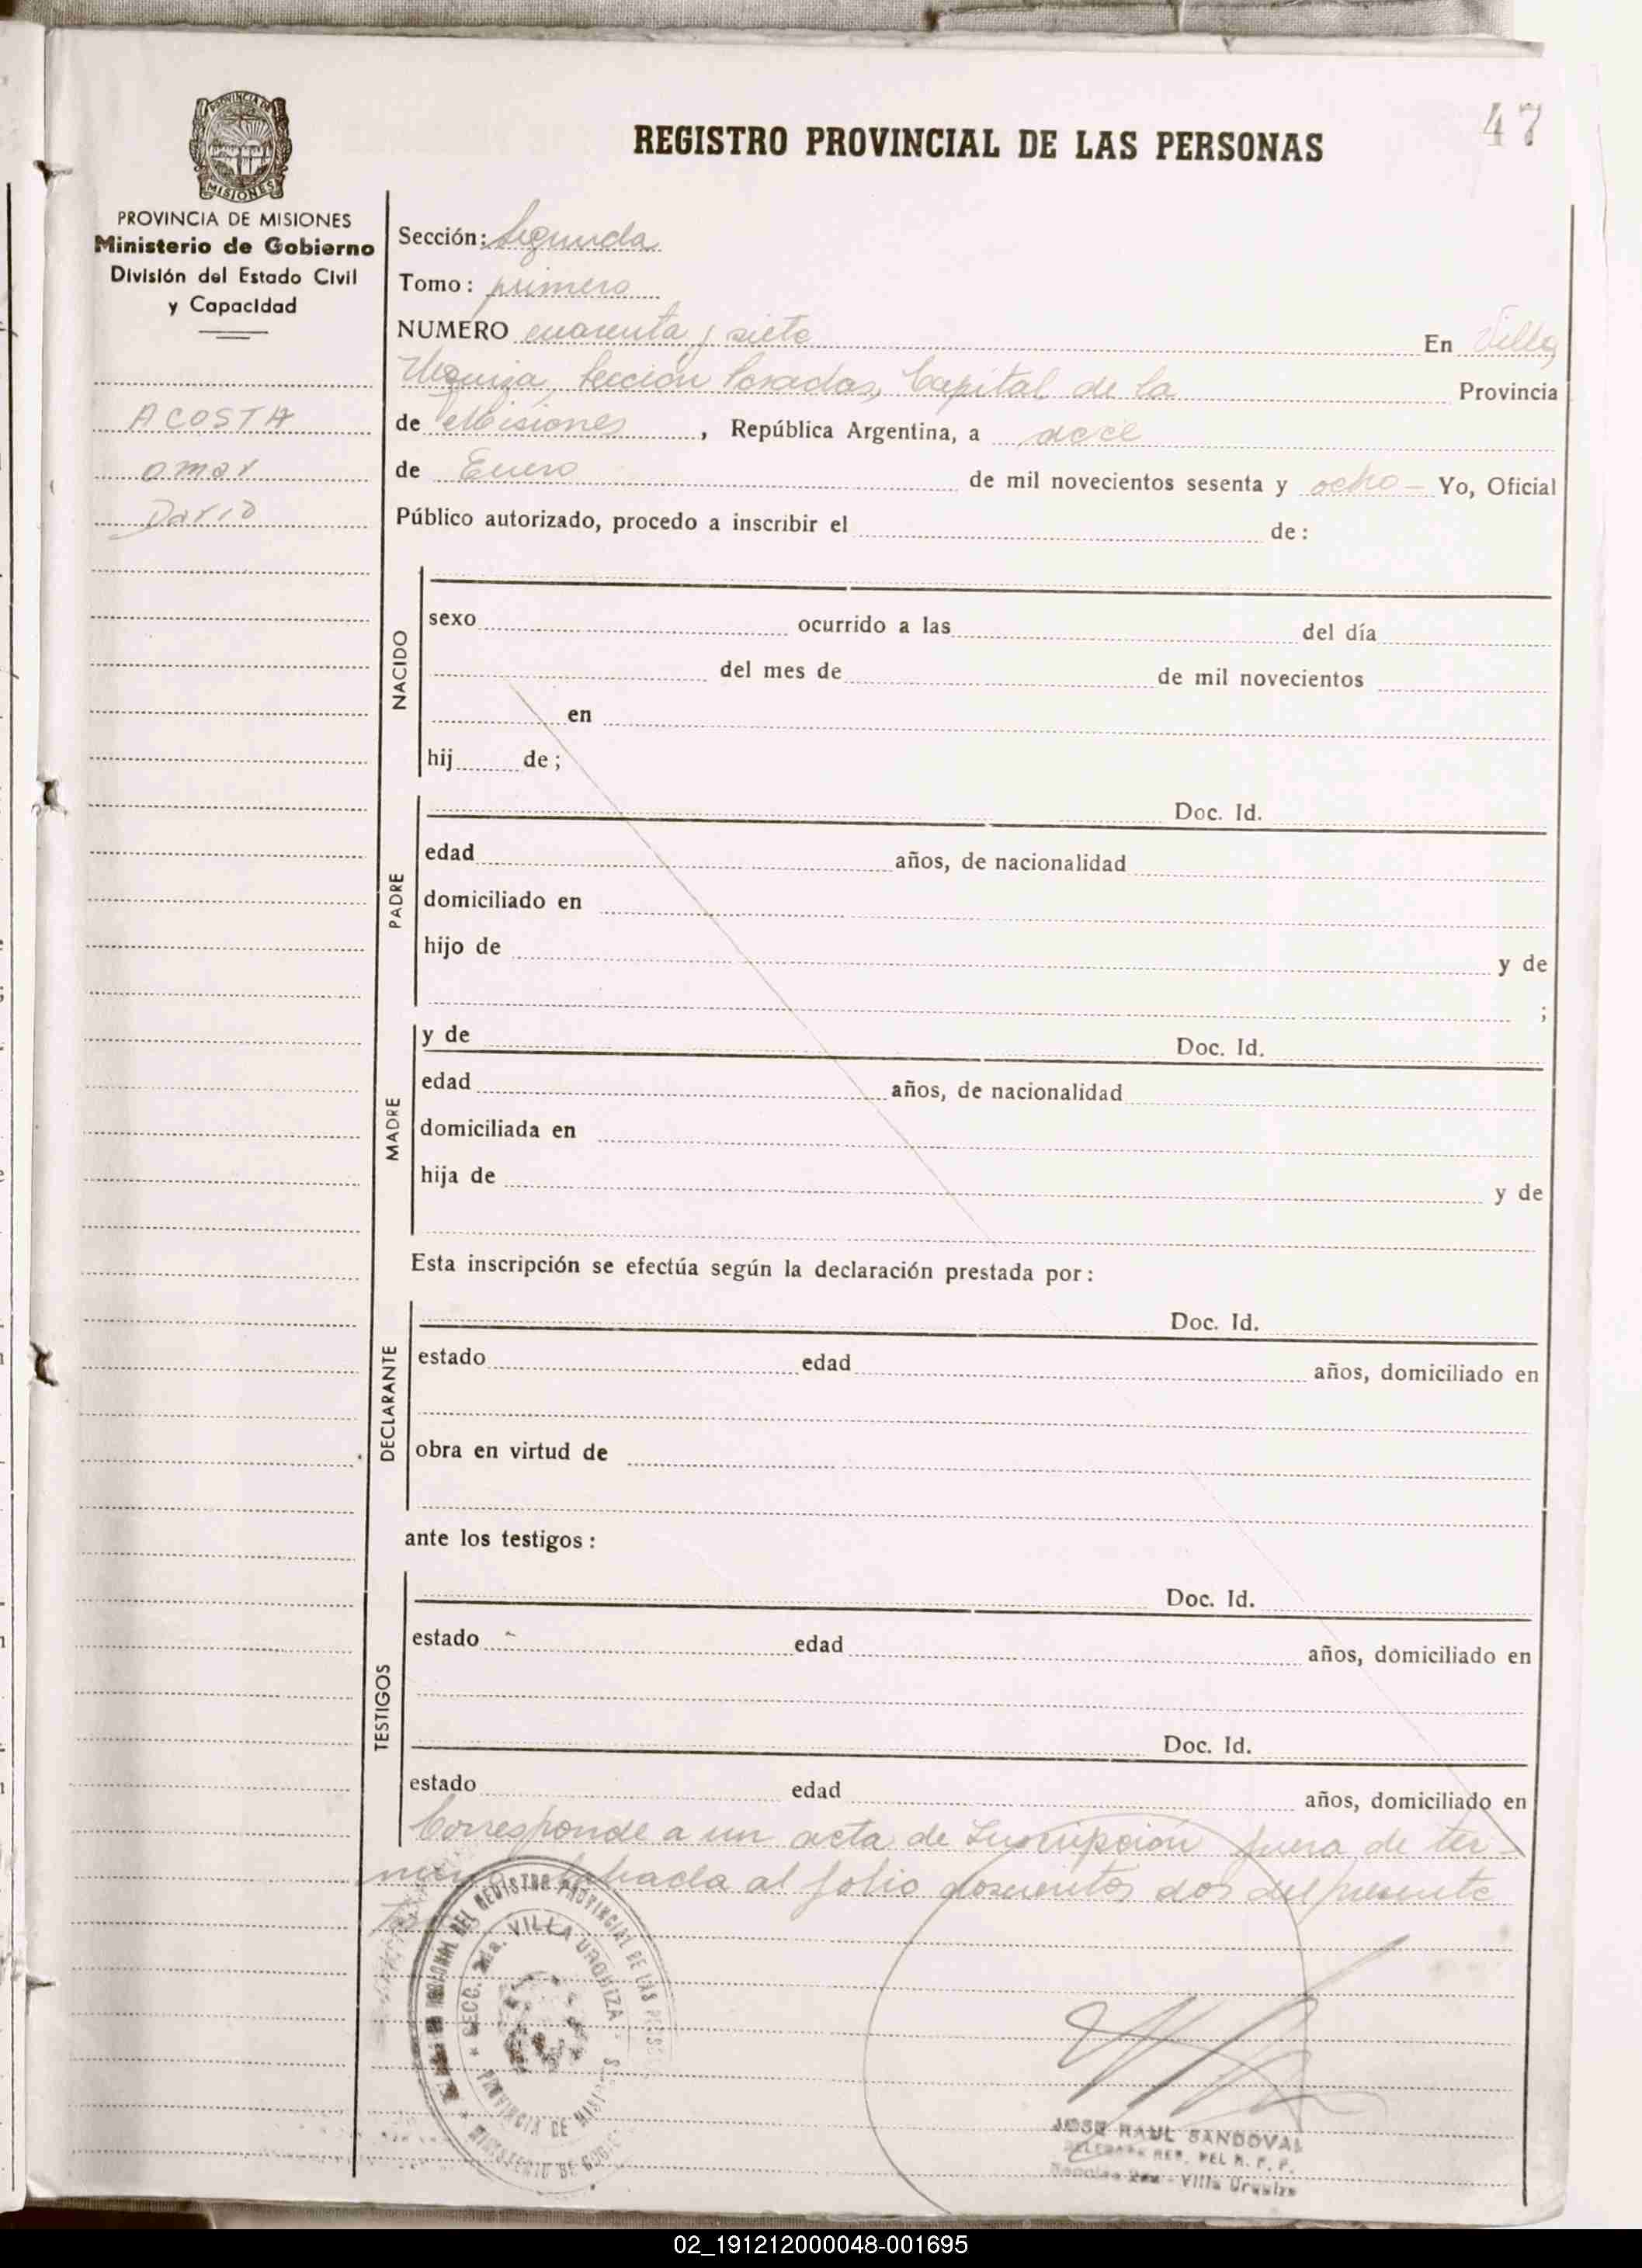 47
REGISTRO PROVINCIAL DE LAS PERSONAS
PROVINCIA DE
MISIONES
PROVINCIA DE MISIONES
Ministerio de Gobierno
División del Estado Civil
y Capacidad
ACOSTA
omar
Dario
Sección: Segunda
Tomo: primero
NUMERO cuarenta y siete En Villa
Urquiza, Sección Posadas, Capital de la Provincia
de Misiones, República Argentina, a doce
de Enero de mil novecientos sesenta y ocho - Yo, Oficial
Público autorizado, procedo a inscribir el de:
NACIDO
sexo ocurrido a las del día
del mes de de mil novecientos
en
hij de;
PADRE
Doc. Id.
edad años, de nacionalidad
domiciliado en
hijo de y de
;
MADRE
y de Doc. Id.
edad años, de nacionalidad
domiciliada en
hija de y de
Esta inscripción se efectúa según la declaración prestada por:
DECLARANTE
Doc. Id.
estado edad años, domiciliado en
obra en virtud de
ante los testigos:
TESTIGOS
Doc. Id.
estado edad años, domiciliado en
Doc. Id.
estado edad años, domiciliado en
Corresponde a un acta de Inscripción fuera de ter-
mino labrada al folio doscientos dos del presente
REGIONAL DEL REGISTRO PROVINCIAL DE LAS
SECC. 2da. VILLA URQUIZA
PROVINCIA DE
MINISTERIO DE
JOSE RAUL SANDOVAL
DEL R. P. P.
2da - Villa Urquiza
02_191212000048-001695